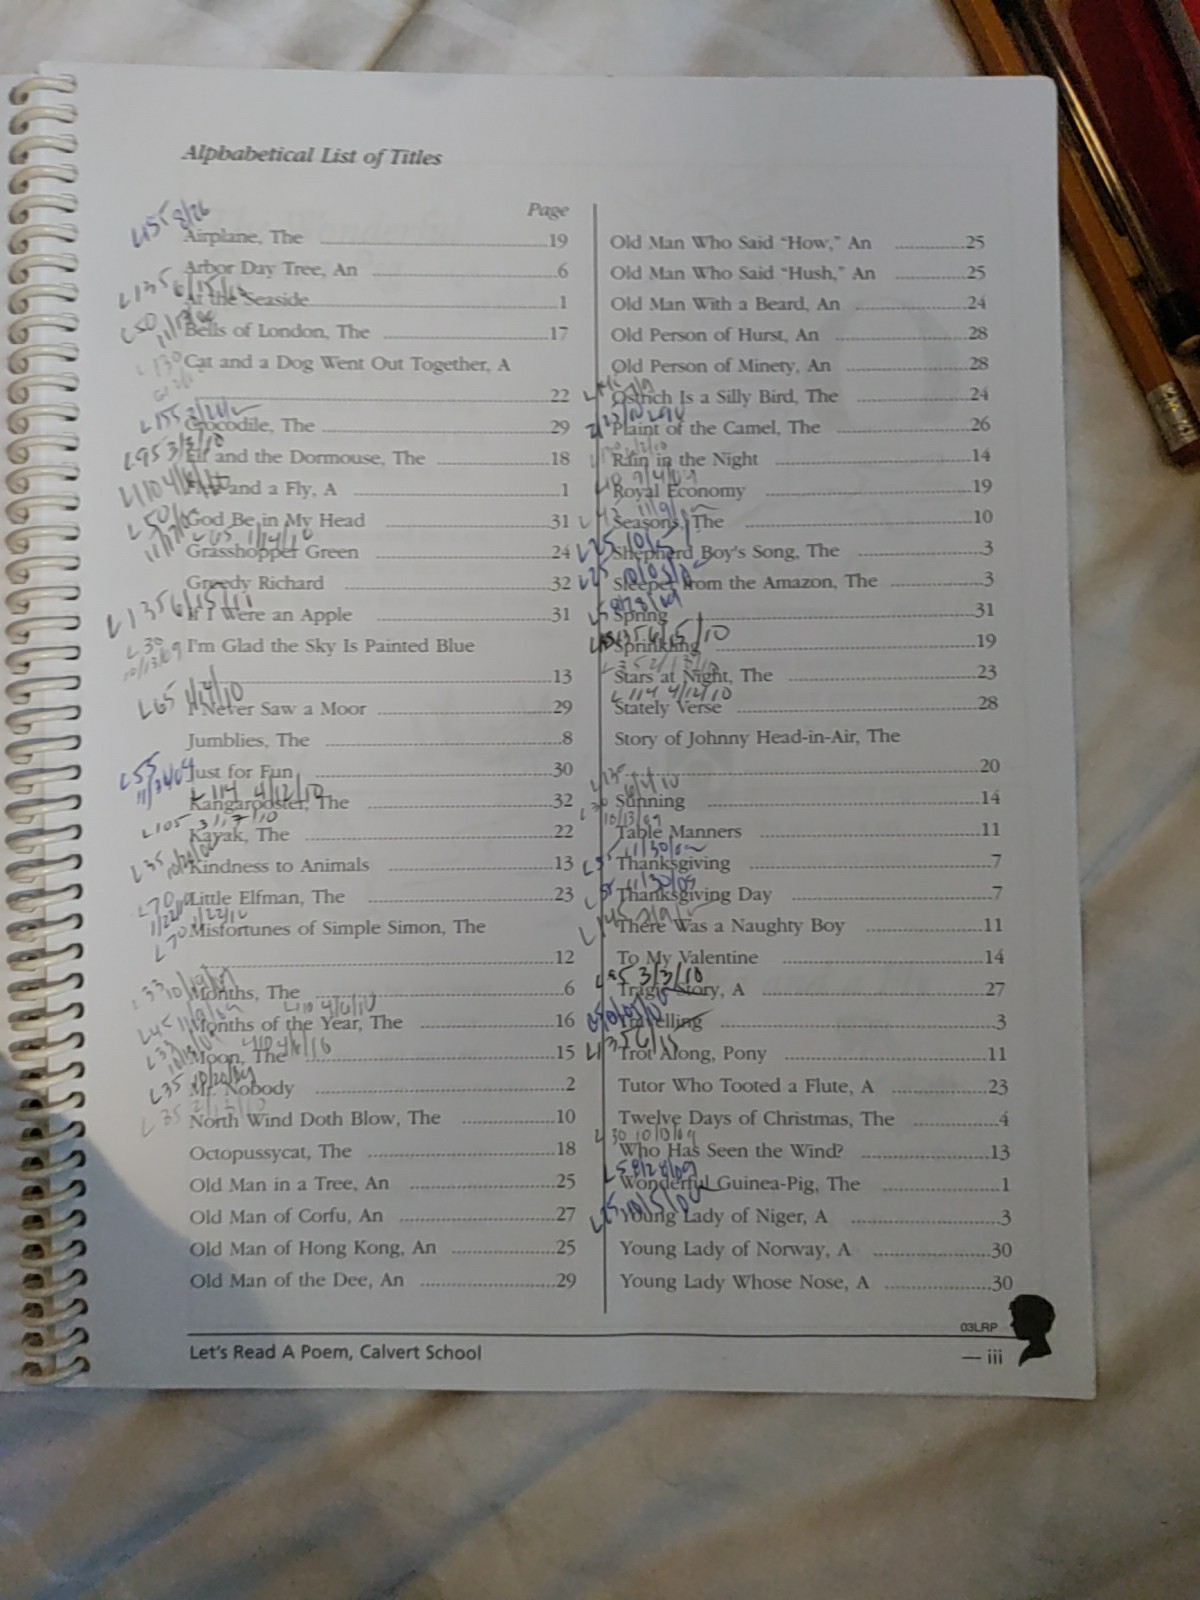 Alphabetical List of Titles
Page
L155 8/26
Airplane, The 19
Arbor Day Tree, An 6
L135 6/15/10
At the Seaside 1
L50
Bells of London, The 17
L130
Cat and a Dog Went Out Together, A
22
L155
Crocodile, The 29
L95 3/3/10
Elf and the Dormouse, The 18
L110
Flea and a Fly, A 1
L50
God Be in My Head 31
L65 1/14/10
Grasshopper Green 24
Greedy Richard 32
L135 6/15/11
If I Were an Apple 31
L30
10/13/09
I'm Glad the Sky Is Painted Blue
13
L65
I Never Saw a Moor 29
Jumblies, The 8
L55
Just for Fun 30
L114 4/12/10
Kangarooster, The 32
L105 3/17/10
Kayak, The 22
L35
Kindness to Animals 13
L70
Little Elfman, The 23
1/22/10
L70
Misfortunes of Simple Simon, The
12
L33 10/19/09
Months, The 6
L45 L110 4/6/10
Months of the Year, The 16
L33
Moon, The 15
L35 10/20/09
Mr. Nobody 2
L35 2/13/10
North Wind Doth Blow, The 10
Octopussycat, The 18
Old Man in a Tree, An 25
Old Man of Corfu, An 27
Old Man of Hong Kong, An 25
Old Man of the Dee, An 29
Old Man Who Said "How," An 25
Old Man Who Said "Hush," An 25
Old Man With a Beard, An 24
Old Person of Hurst, An 28
Old Person of Minety, An 28
Ostrich Is a Silly Bird, The 24
Plaint of the Camel, The 26
Rain in the Night 14
Royal Economy 19
Seasons, The 10
L25 10/5
Shepherd Boy's Song, The 3
L25 10/05/0
Sleeper from the Amazon, The 3
L5 8/28/09
Spring 31
L135 6/15/10
Sprinkling 19
L35 2/13/10
Stars at Night, The 23
L114 4/12/10
Stately Verse 28
Story of Johnny Head-in-Air, The
20
L135
6/4/10
Sunning 14
L30 10/13/09
Table Manners 11
Thanksgiving 7
11/30/09
Thanksgiving Day 7
There Was a Naughty Boy 11
To My Valentine 14
L95 3/3/10
Tragic Story, A 27
Travelling 3
L135 6/15
Trot Along, Pony 11
Tutor Who Tooted a Flute, A 23
Twelve Days of Christmas, The 4
L30 10/13/09
Who Has Seen the Wind? 13
L5 8/28/09
Wonderful Guinea-Pig, The 1
L25 10/5/09
Young Lady of Niger, A 3
Young Lady of Norway, A 30
Young Lady Whose Nose, A 30
03LRP
Let's Read A Poem, Calvert School
— iii